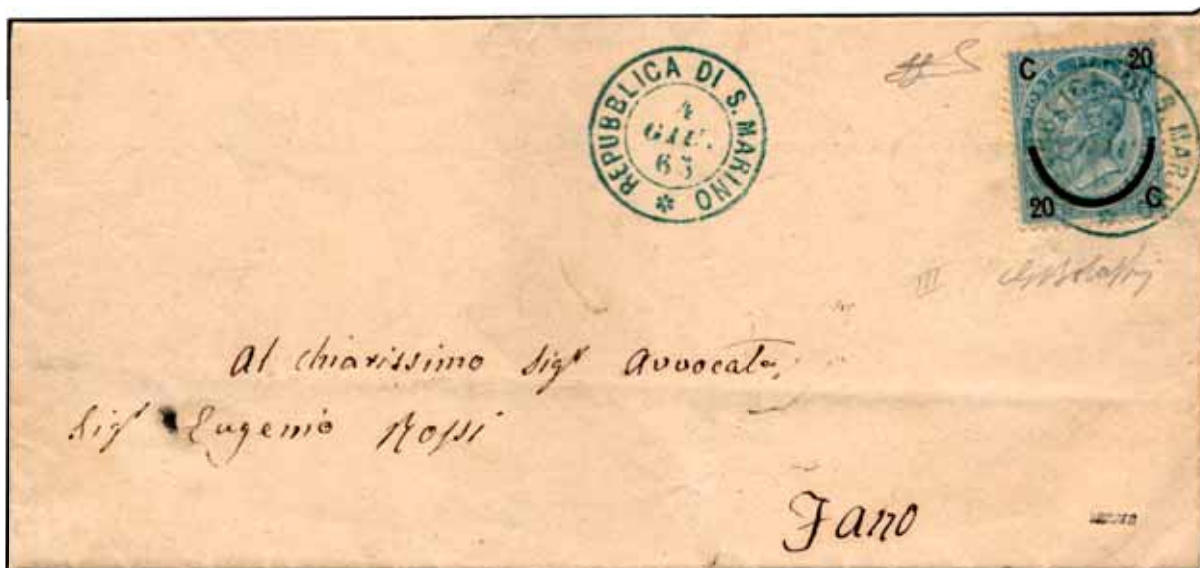 REPUBBLICA DI S. MARINO
4
GIU.
65
C 20
20 C
S. MARINO
III
Al chiarissimo Sigr Avvocato
Sigr Eugenio Rossi
Fano